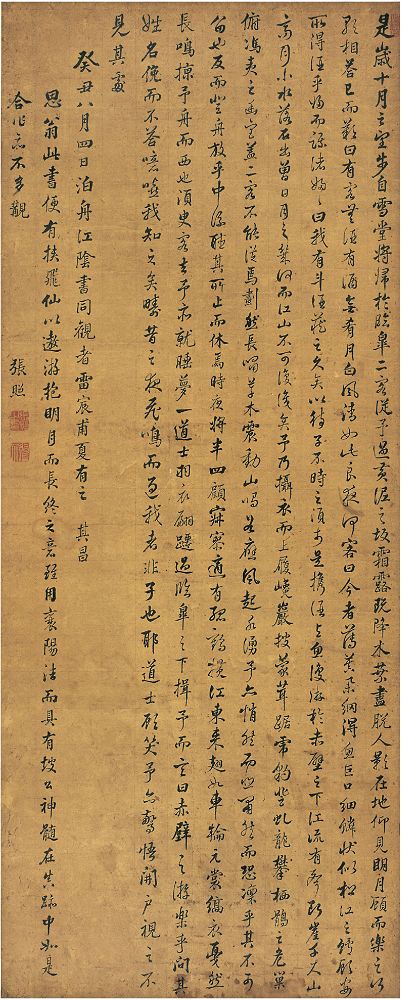 是歲十月之望步自雪堂將歸於臨皋二客從予過黃泥之坂霜露既降木葉盡脫人影在地仰見明月顧而樂之行
歌相答已而歎曰有客無酒有酒無肴月白風清如此良夜何客曰今者薄暮舉網得魚巨口細鱗狀似松江之鱸顧安
所得酒乎歸而謀諸婦婦曰我有斗酒藏之久矣以待子不時之須於是攜酒與魚復游於赤壁之下江流有聲斷岸千尺山
高月小水落石出曾日月之幾何而江山不可復識矣予乃攝衣而上履巉巖披蒙茸踞虎豹登虬龍攀栖鶻之危巢
俯馮夷之幽宮蓋二客不能從焉劃然長嘯草木震動山鳴谷應風起水湧予亦悄然而悲肅然而恐凜乎其不可
留也反而登舟放乎中流聽其所止而休焉時夜將半四顧寂寥適有孤鶴橫江東來翅如車輪元裳縞衣戛然
長鳴掠予舟而西也須臾客去予亦就睡夢一道士羽衣翩躚過臨皋之下揖予而言曰赤壁之游樂乎問其
姓名俛而不答噫嘻我知之矣疇昔之夜飛鳴而過我者非子也耶道士顧笑予亦驚悟開戶視之不
見其處
癸丑八月四日泊舟江陰書同觀者雷宸甫夏有之 其昌
思翁此書便有挾飛仙以遨游抱明月而長終之意雖用襄陽法而具有坡公神髓在真跡中如是
合作亦不多觀
張照